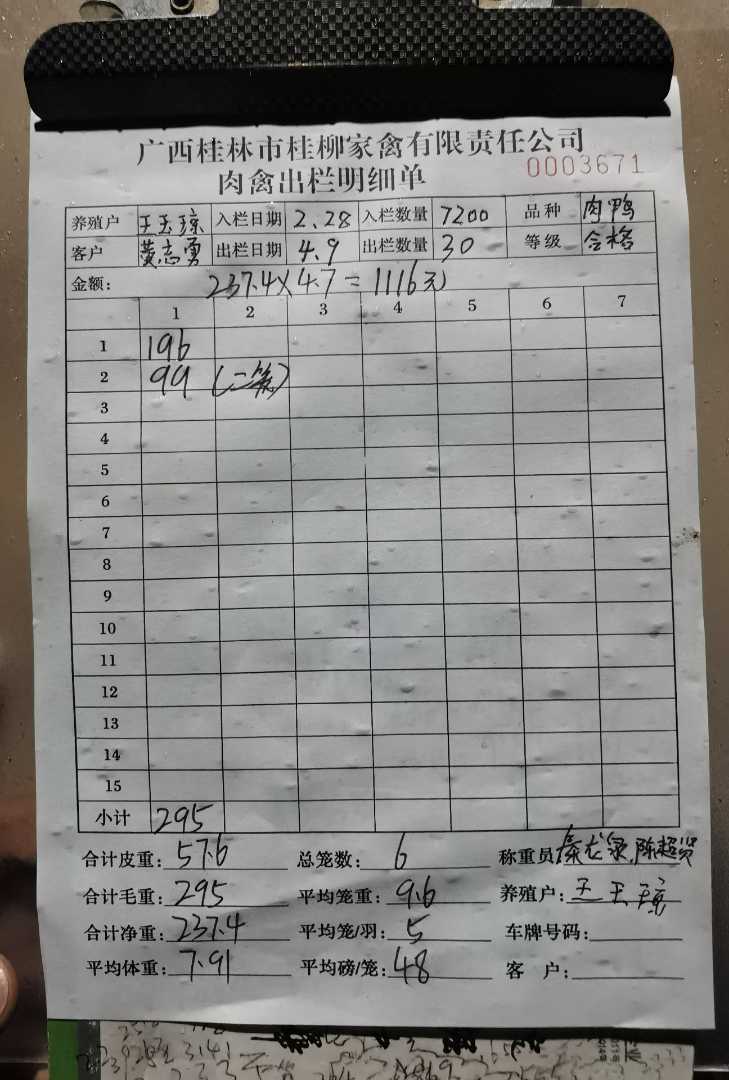 广西桂林市桂柳家禽有限责任公司
0003671
肉禽出栏明细单
养殖户 王玉琼 入栏日期 2.28 入栏数量 7200 品种 肉鸭
客户 黄志勇 出栏日期 4.9 出栏数量 30 等级 合格
金额: 237.4×4.7=1116元
1 2 3 4 5 6 7
1 196
2 99 (二笼)
3
4
5
6
7
8
9
10
11
12
13
14
15
小计 295
合计皮重: 57.6 总笼数: 6 称重员: 陈超贤
合计毛重: 295 平均笼重: 9.6 养殖户: 王玉琼
合计净重: 237.4 平均笼/羽: 5 车牌号码:
平均体重: 7.91 平均磅/笼: 48 客 户: